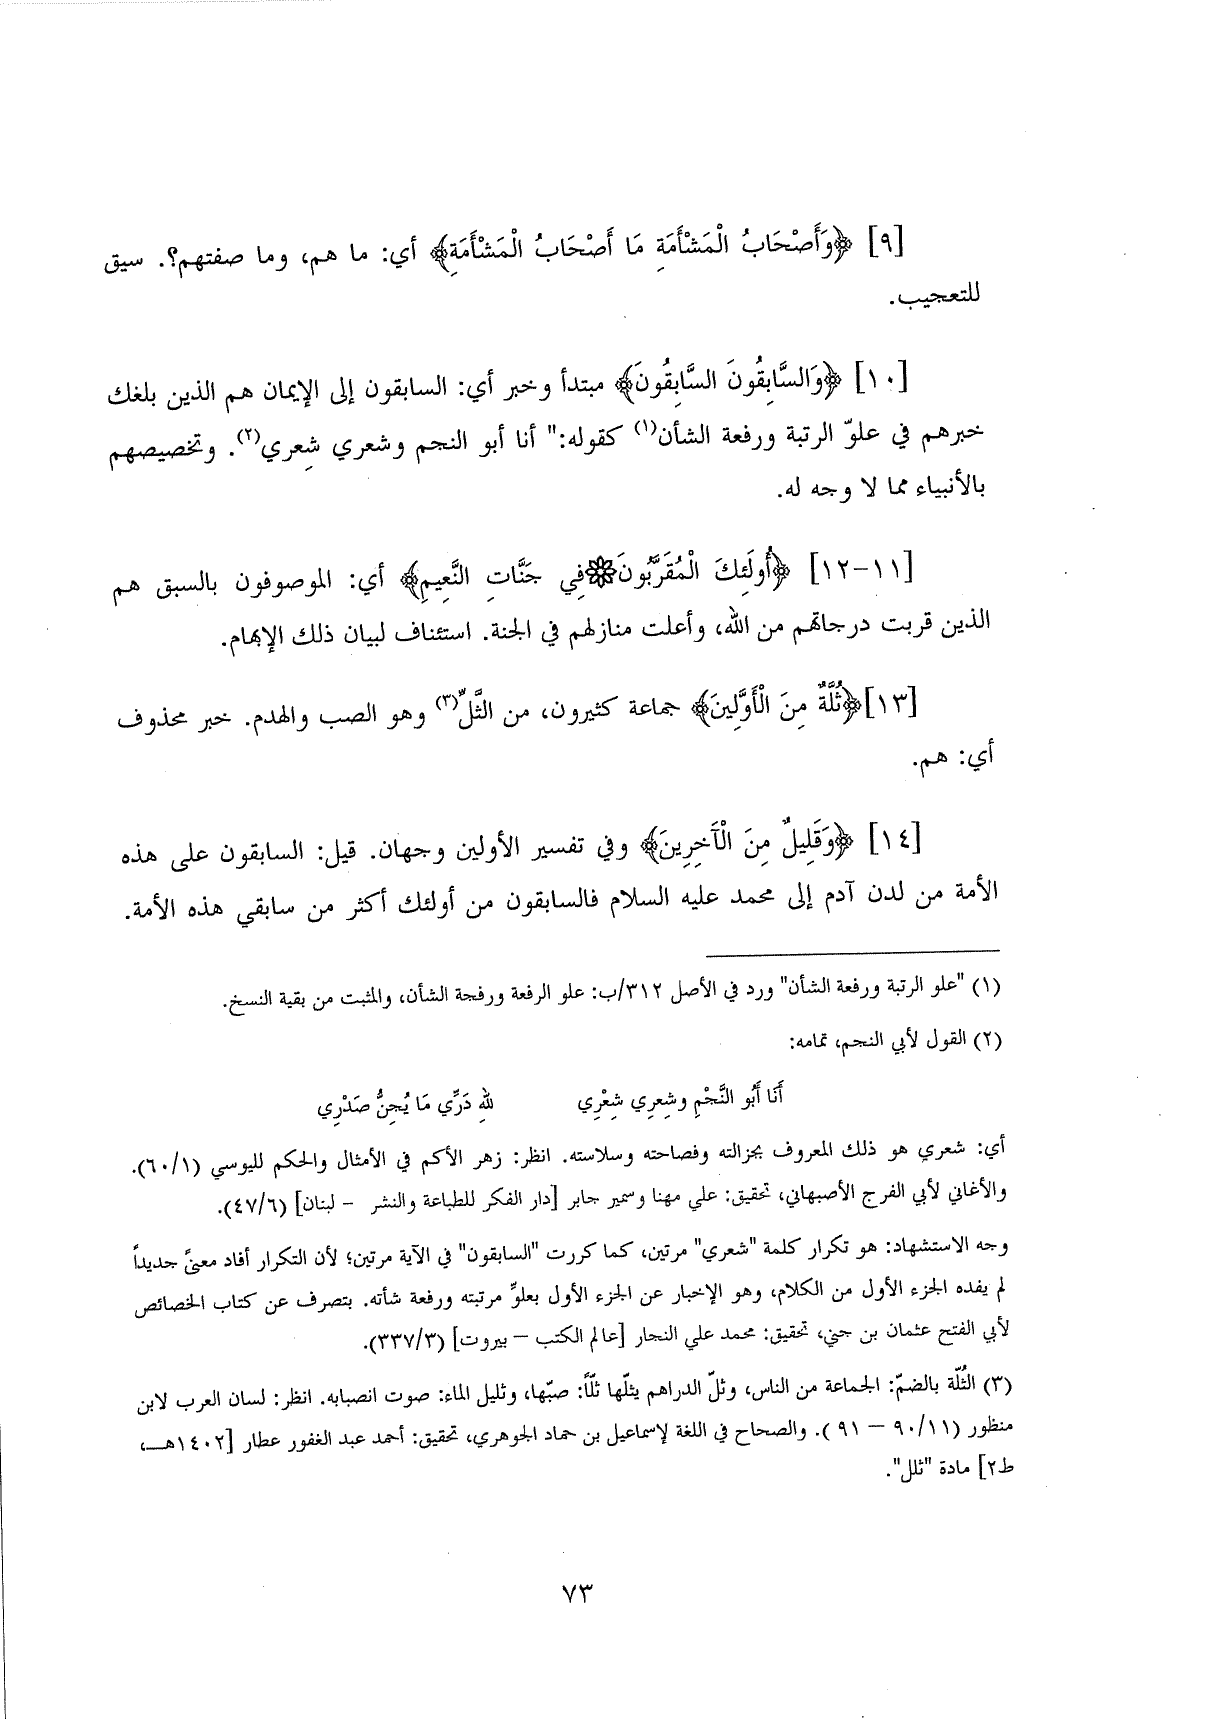 [٩] ﴿وَأَصْحَابُ الْمَشْأَمَةِ مَا أَصْحَابُ الْمَشْأَمَةِ﴾ أي: ما هم، وما صفتهم؟. سيق
للتعجيب.
[١٠] ﴿وَالسَّابِقُونَ السَّابِقُونَ﴾ مبتدأ وخبر أي: السابقون إلى الإيمان هم الذين بلغك
خبرهم في علوّ الرتبة ورفعة الشأن(١) كقوله:" أنا أبو النجم وشعري شِعري(٢). وتخصيصهم
بالأنبياء مما لا وجه له.
[١١-١٢] ﴿أُولَئِكَ الْمُقَرَّبُونَ۞فِي جَنَّاتِ النَّعِيمِ﴾ أي: الموصوفون بالسبق هم
الذين قربت درجاتهم من الله، وأعلت منازلهم في الجنة. استئناف لبيان ذلك الإبهام.
[١٣]﴿ثُلَّةٌ مِنَ الْأَوَّلِينَ﴾ جماعة كثيرون، من الثَّلِّ(٣) وهو الصب والهدم. خبر محذوف
أي: هم.
[١٤] ﴿وَقَلِيلٌ مِنَ الْآخِرِينَ﴾ وفي تفسير الأولين وجهان. قيل: السابقون على هذه
الأمة من لدن آدم إلى محمد عليه السلام فالسابقون من أولئك أكثر من سابقي هذه الأمة.
(١) "علو الرتبة ورفعة الشأن" ورد في الأصل ٣١٢/ب: علو الرفعة ورفحة الشأن، والمثبت من بقية النسخ.
(٢) القول لأبي النجم، تمامه:
أَنَا أَبُو النَّجْمِ وشِعرِي شِعْرِي لله دَرِّي مَا يُجِنُّ صَدْرِي
أي: شعري هو ذلك المعروف بجزالته وفصاحته وسلاسته. انظر: زهر الأكم في الأمثال والحكم لليوسي (٦٠/١).
والأغاني لأبي الفرج الأصبهاني، تحقيق: علي مهنا وسمير جابر [دار الفكر للطباعة والنشر - لبنان] (٤٧/٦).
وجه الاستشهاد: هو تكرار كلمة "شعري" مرتين، كما كررت "السابقون" في الآية مرتين؛ لأن التكرار أفاد معنىً جديداً
لم يفده الجزء الأول من الكلام، وهو الإخبار عن الجزء الأول بعلوِّ مرتبته ورفعة شأنه. بتصرف عن كتاب الخصائص
لأبي الفتح عثمان بن جني، تحقيق: محمد علي النجار [عالم الكتب – بيروت] (٣٣٧/٣).
(٣) الثُلّة بالضمّ: الجماعة من الناس، وثلّ الدراهم يثلّها ثلّاً: صبّها، وثليل الماء: صوت انصبابه. انظر: لسان العرب لابن
منظور (٩٠/١١ – ٩١ ). والصحاح في اللغة لإسماعيل بن حماد الجوهري، تحقيق: أحمد عبد الغفور عطار [١٤٠٢هـ،
ط٢] مادة "ثلل".
٧٣